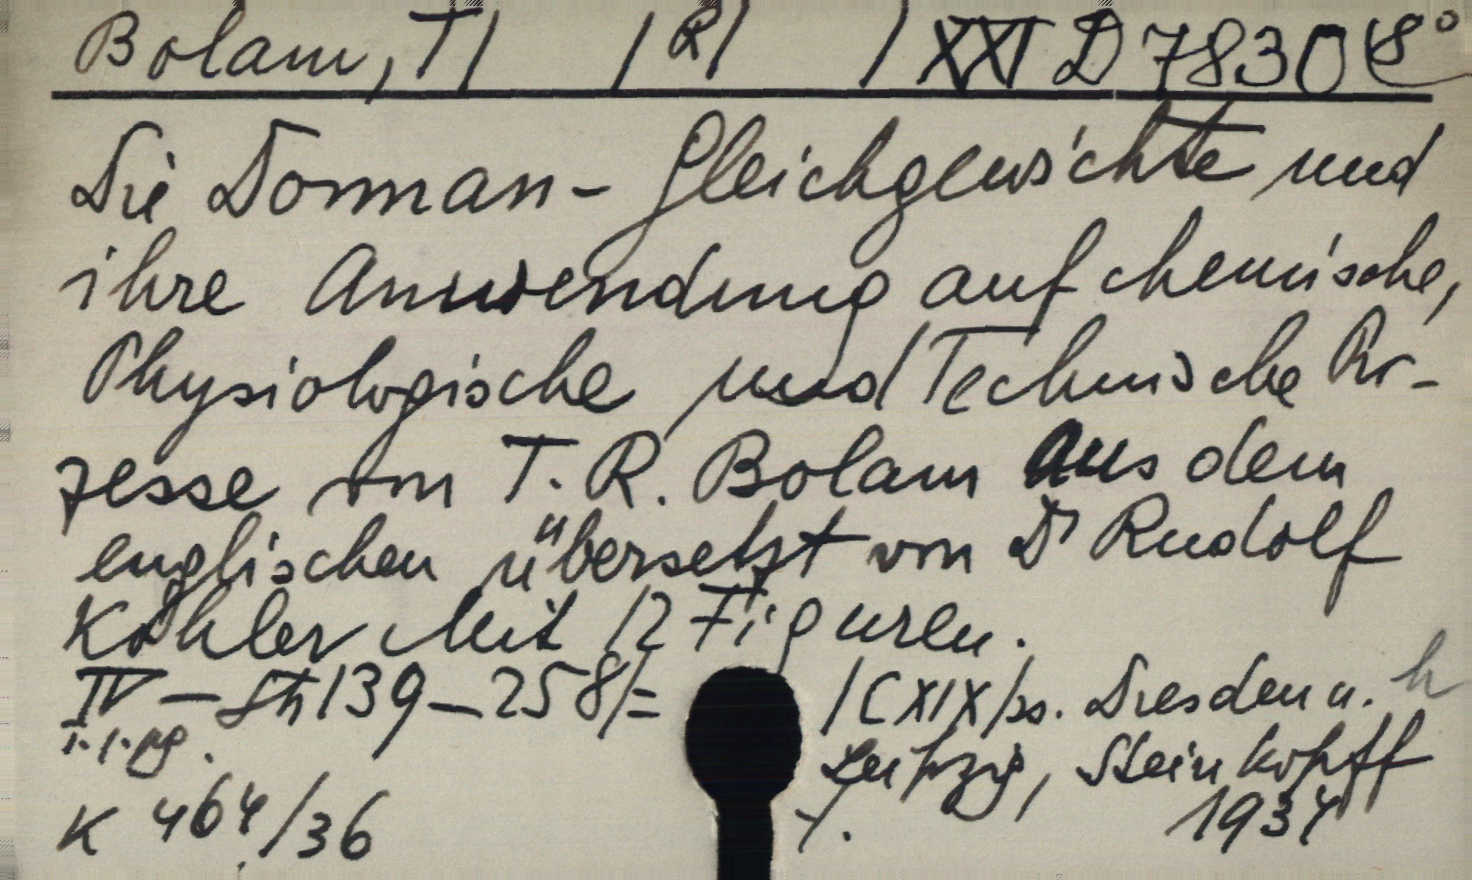 Bolam, T/ /R/ / XXI D 7830 8°
Die Donnan - Gleichgewichte und
ihre Anwendung auf chemische,
Physiologische und Technische Pro-
zesse von T. R. Bolam aus dem
englischen übersetzt von Dr Rudolf
Köhler Mit 12 Figuren.
IV - 139-258/= /CXIX/ss. Dresden u. h
Leipzig, Steinkopff
K 464/36 1934